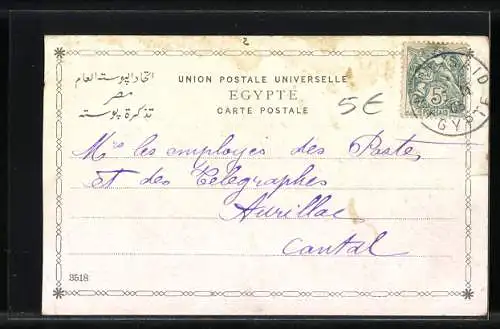 2
اتحاد البوسته العام
مصر
تذكرة بوسته
UNION POSTALE UNIVERSELLE
EGYPTE
CARTE POSTALE
5€
5c
EGYPTE
Mrs les employés des Postes
et des Télégraphes
Aurillac
Cantal
3518